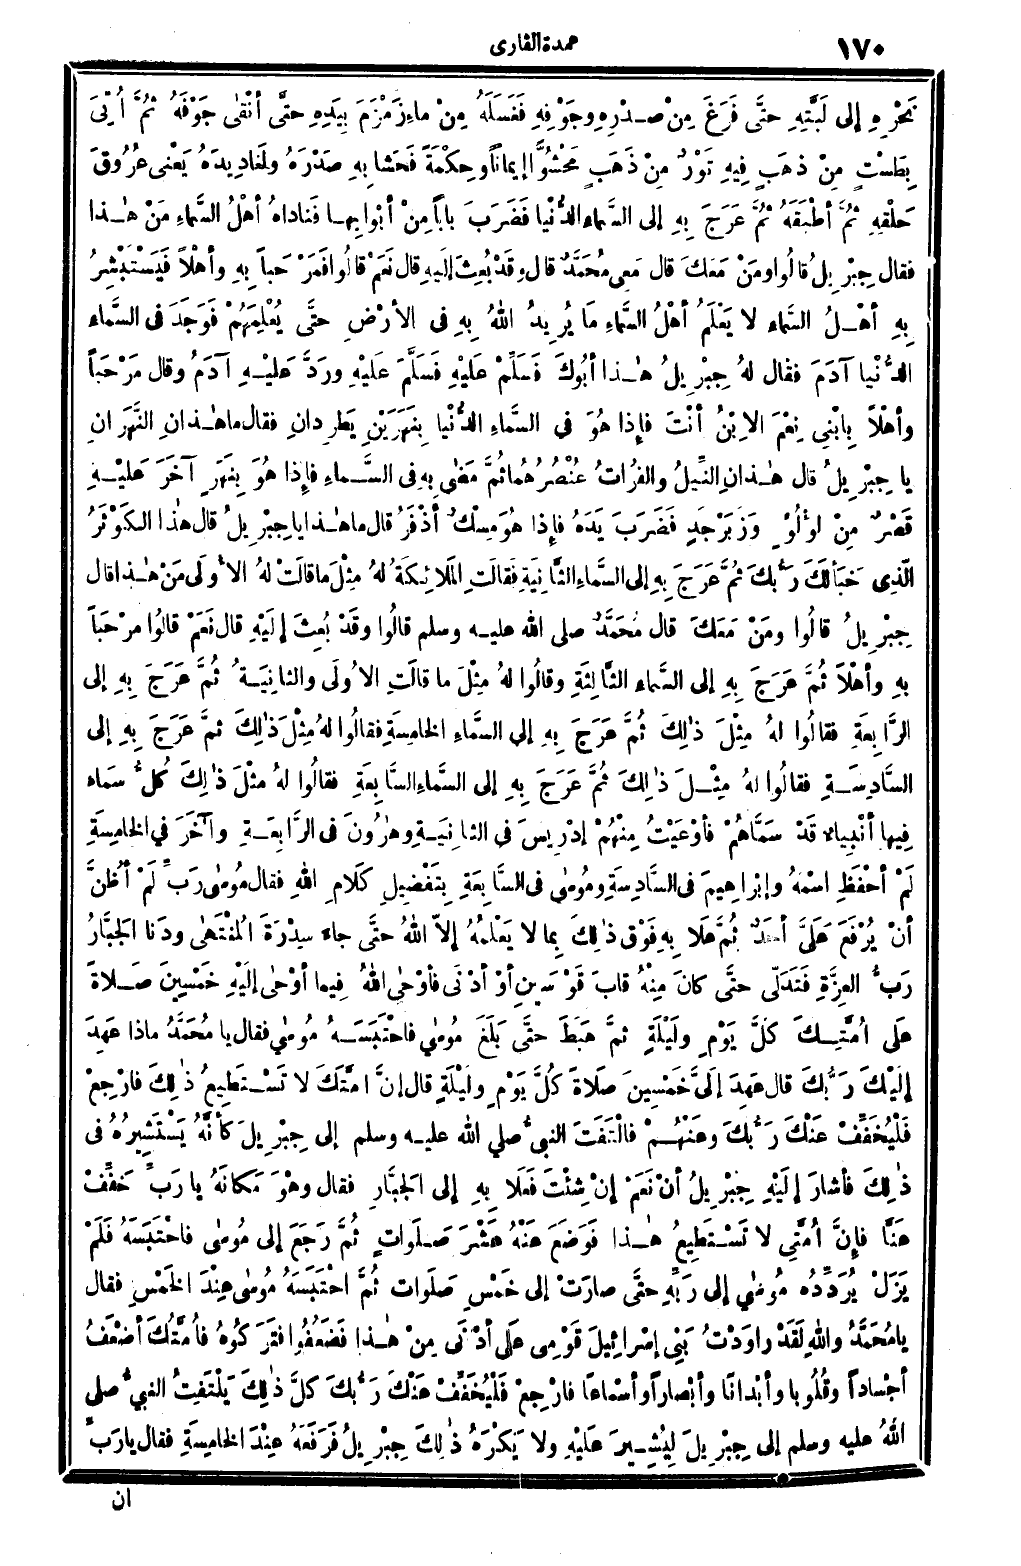 ١٧٠
عمدة القارى
نَحْرِهِ إلى لَبَّتِهِ حتَّى فَرَغَ مِنْ صَدْرِهِ وجَوْفِهِ فَغَسَلَهُ مِنْ ماءِ زَمْزَمَ بِيَدِهِ حتَّى أنْقٰى جَوْفَهُ ثُمَّ أُتِىَ
بِطَسْتٍ مِنْ ذهَبٍ فِيهِ تَوْرٌ مِنْ ذَهَبٍ مَحْشُوًّا إيمانًا وحِكْمَةً فَحَشا بِهِ صَدْرَهُ ولَغادِيدَهُ يَعْنى عُرُوقَ
حَلْقِهِ ثُمَّ أطْبَقَهُ ثُمَّ عَرَجَ بِهِ إلى السَّماءِ الدُّنْيا فَضَرَبَ بابًا مِنْ أبْوابِها فَناداهُ أهْلُ السَّماءِ مَنْ هٰذا
فقال جِبْرِيلُ قالُوا ومَنْ مَعَكَ قال مَعِى مُحَمَّدٌ قال وقَدْ بُعِثَ إلَيهِ قال نَعَمْ قالُوا فَمَرْحَبًا بِهِ وأهْلاً فَيَسْتَبْشِرُ
بِهِ أهْلُ السَّماءِ لا يَعْلَمُ أهْلُ السَّماءِ ما يُرِيدُ اللهُ بِهِ فى الأرْضِ حتَّى يُعْلِمَهُمْ فَوَجَدَ فى السَّماءِ
الدُّنْيا آدَمَ فقال لهُ جِبْرِيلُ هٰذا أبُوكَ فَسَلِّمْ عَلَيْهِ فَسَلَّمَ عَلَيْهِ ورَدَّ عَلَيْهِ آدَمُ وقال مَرْحَبًا
وأهْلاً بِابْنِى نِعْمَ الابْنُ أنْتَ فإذا هُوَ فى السَّماءِ الدُّنْيا بِنَهَرَيْنِ يَطَّرِدانِ فقال ما هٰذانِ النَّهَرانِ
يا جِبْرِيلُ قال هٰذانِ النِّيلُ والفُراتُ عُنْصُرُهُما ثُمَّ مَضٰى بِهِ فى السَّماءِ فإذا هُوَ بِنَهَرٍ آخَرَ عَلَيْهِ
قَصْرٌ مِنْ لُؤلُؤٍ وَزَبَرْجَدٍ فَضَرَبَ يَدَهُ فإذا هُوَ مِسْكٌ أذْفَرُ قال ما هٰذا يا جِبْرِيلُ قال هٰذا الكَوْثَرُ
الَّذِى خَبَأ لَكَ رَبُّكَ ثُمَّ عَرَجَ بِهِ إلى السَّماءِ الثَّانِيَةِ فقالَتِ المَلائِكَةُ لهُ مِثْلَ ما قالَتْ لهُ الأُولَى مَنْ هٰذا قال
جِبْرِيلُ قالُوا ومَنْ مَعَكَ قال مُحَمَّدٌ صلى الله عليه وسلم قالُوا وقَدْ بُعِثَ إلَيْهِ قال نَعَمْ قالُوا مرْحَبًا
بِهِ وأهْلاً ثُمَّ عَرَجَ بِهِ إلى السَّماءِ الثَّالِثَةِ وقالُوا لهُ مِثْلَ ما قالَتِ الاُولَى والثانِيَةُ ثُمَّ عَرَجَ بِهِ إلى
الرَّابِعَةِ فقالُوا لهُ مِثْلَ ذٰلِكَ ثُمَّ عَرَجَ بِهِ إلى السَّماءِ الخامِسَةِ فقالُوا لهُ مِثْلَ ذٰلِكَ ثمَّ عَرَجَ بِهِ إلى
السَّادِسَةِ فقالُوا لهُ مِثْلَ ذٰلِكَ ثُمَّ عَرَجَ بِهِ إلى السَّماءِ السَّابِعَةِ فقالُوا لهُ مثْلَ ذٰلِكَ كُلُّ سَماءٍ
فِيها أنْبِياءُ قَدْ سَمَّاهُمْ فأوْعَيْتُ مِنْهُمْ إدْرِيسَ فى الثانِيَةِ وهٰرُونَ فى الرَّابِعَةِ وآخَرَ فى الخامِسَةِ
لَمْ أحْفَظِ اسْمَهُ وإبْراهِيمَ فى السَّادِسَةِ ومُوسٰى فى السَّابِعَةِ بِتَفْضِيلِ كَلامِ اللهِ فقال مُوسٰى رَبِّ لَمْ أظُنَّ
أنْ يُرْفَعَ عَلَىَّ أحَدٌ ثُمَّ عَلا بِهِ فَوْقَ ذٰلِكَ بِما لا يَعْلَمُهُ إلاَّ اللهُ حتَّى جاءَ سِدْرَةَ المُنْتَهٰى ودَنا الجَبَّارُ
رَبُّ العِزَّةِ فَتَدَلّى حتَّى كانَ مِنْهُ قابَ قَوْسَيْنِ أوْ أدْنَى فأوْحٰى اللهُ فِيما أوْحٰى إلَيْهِ خَمْسِينَ صَلاةً
عَلى اُمَّتِكَ كُلَّ يَوْمٍ ولَيْلَةٍ ثمَّ هَبَطَ حتَّى بَلَغَ مُوسٰى فاحْتَبَسَهُ مُوسٰى فقال يا مُحَمَّدُ ماذا عَهِدَ
إلَيْكَ رَبُّكَ قال عَهِدَ إلَىَّ خَمْسِينَ صَلاةً كُلَّ يَوْمٍ ولَيْلَةٍ قال إنَّ امَّتَكَ لا تَسْتَطِيعُ ذٰلِكَ فارْجِعْ
فَلْيُخَفِّفْ عَنْكَ رَبُّكَ وعَنْهُمْ فالْتَفَتَ النبىُّ صلى الله عليه وسلم إلى جِبْرِيلَ كأنَّهُ يَسْتَشِيرُهُ فى
ذٰلِكَ فأشارَ إلَيْهِ جِبْرِيلُ أنْ نَعَمْ إنْ شِئْتَ فَعَلا بِهِ إلى الجَبَّارِ فقال وهْوَ مَكانَهُ يا رَبِّ خَفِّفْ
عَنَّا فإنَّ اُمَّتِى لا تَسْتَطِيعُ هٰذا فَوَضَعَ عَنْهُ عَشْرَ صَلَواتٍ ثُمَّ رَجَعَ إلى مُوسٰى فاحْتَبَسَهُ فَلَمْ
يَزَلْ يُرَدِّدُهُ مُوسٰى إلى رَبِّهِ حتَّى صارَتْ إلى خَمْسِ صَلَوات ثُمَّ احْتَبَسَهُ مُوسٰى عِنْدَ الخَمْسِ فقال
يا مُحَمَّدُ واللهِ لَقَدْ راوَدْتُ بَنِى إسْرائِيلَ قَوْمِى عَلى أدْنَى مِنْ هٰذا فَضَعُفُوا فتَرَكُوهُ فاُمَّتُكَ أضْعَفُ
أجْسادًا وقُلُوبا وأبْدانًا وأبْصارًا وأسْماعًا فارْجِعْ فَلْيُخَفِّفْ عَنْكَ رَبُّكَ كلَّ ذٰلِكَ يَلْتَفِتُ النبىُّ صلى
اللهُ عليه وسلم إلى جِبْرِيلَ لِيُشِيرَ عَلَيْهِ ولا يَكْرَهُ ذٰلِكَ جِبْرِيلُ فَرَفَعَهُ عِنْدَ الخامِسَةِ فقال يا رَبِّ
ان